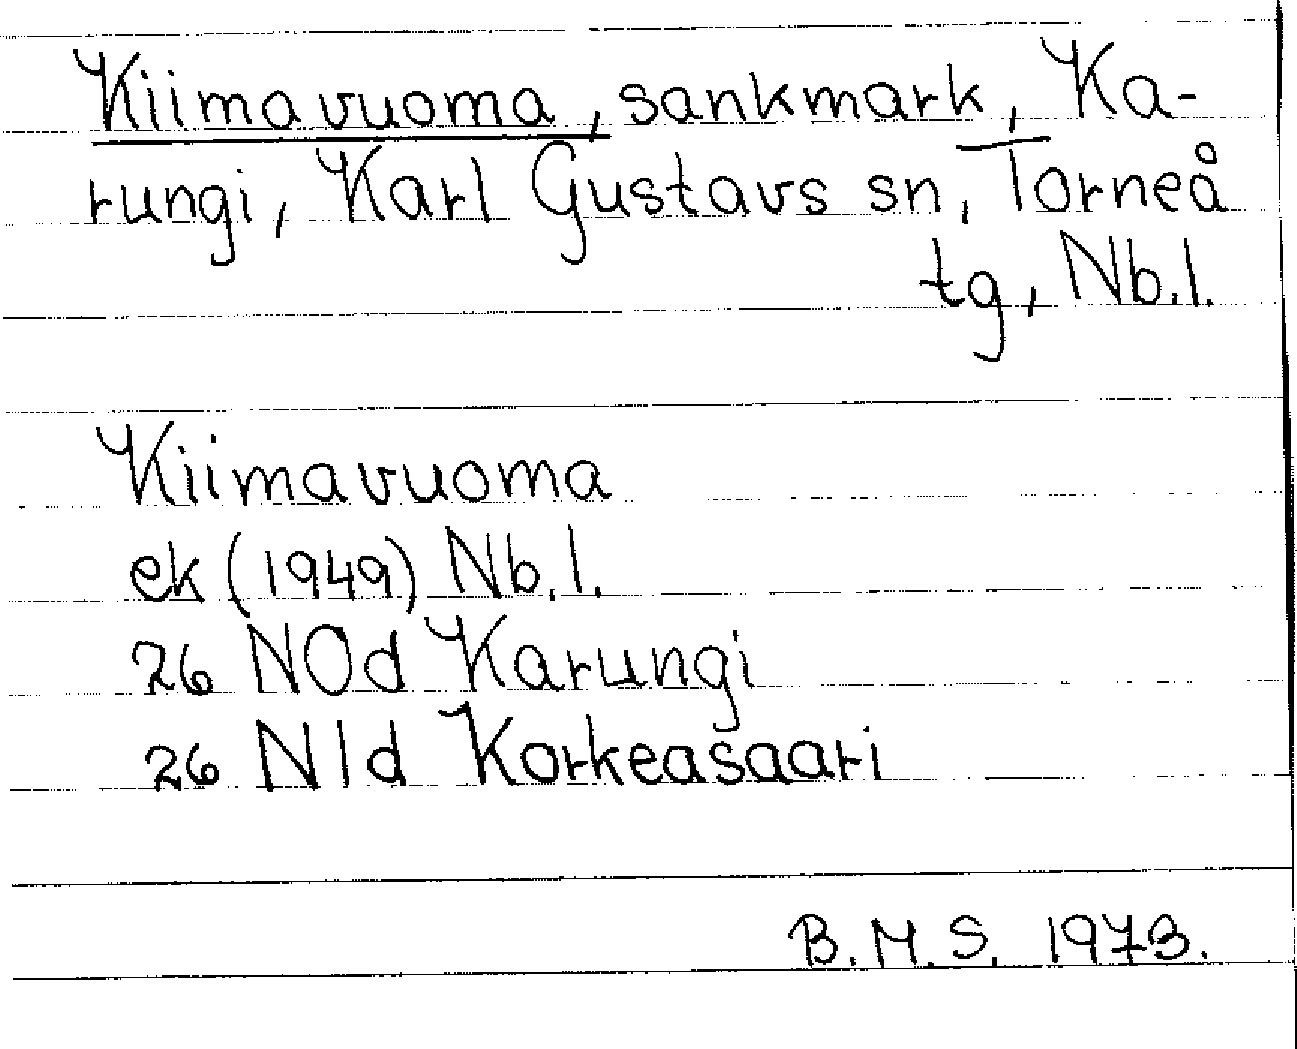 Kiimavuoma, sankmark, Ka-
rungi, Karl Gustavs sn, Torneå
tg, Nb.l.
Kiimavuoma
ek (1949) Nb.l.
26 NOd Karungi
26 N1d Korkeasaari
B.M.S. 1973.